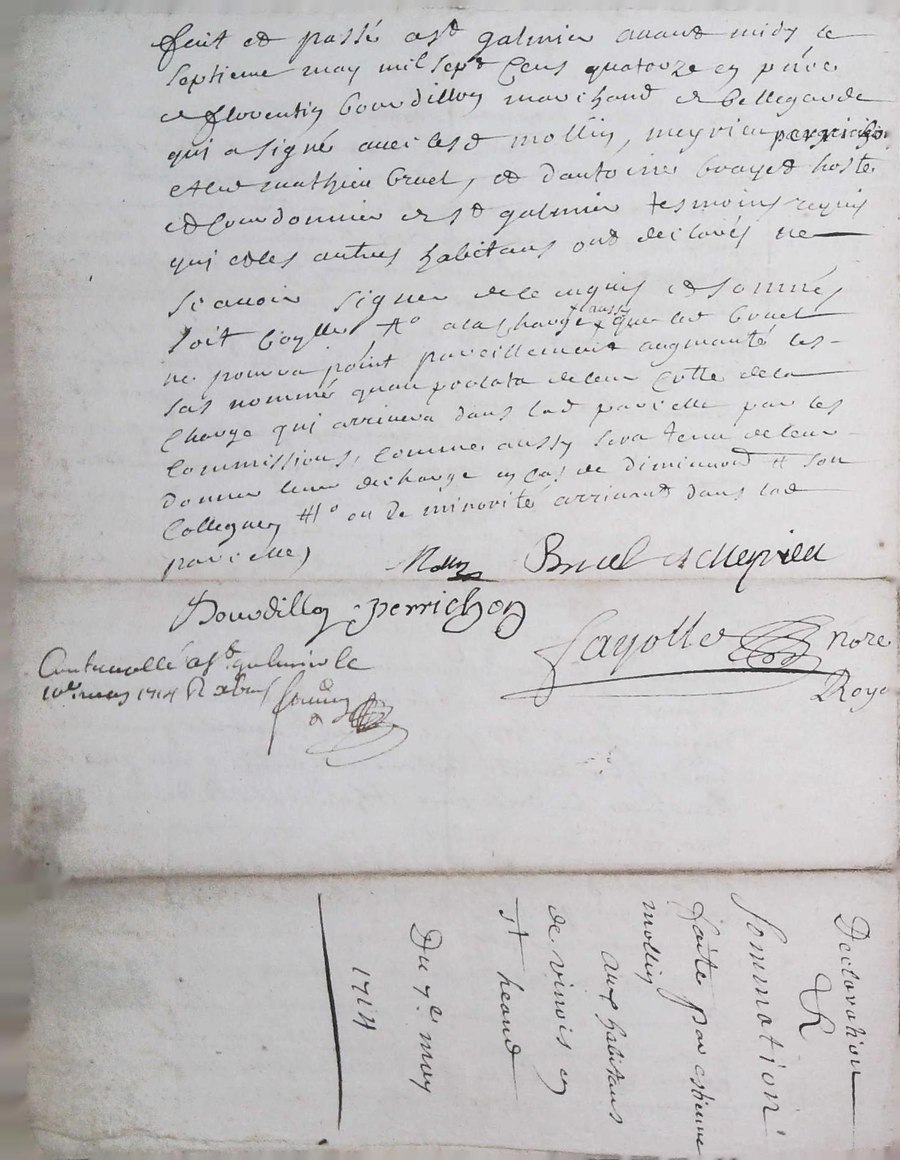 fait et passé a st galmier avant midy le
septieme may mil sept cens quatorze en pnce
de florentin bourdillon marchand de bellegarde
qui a signé avec led mollin, meyrieu perrichon
mathieu bruel, et d'antoine brayet hoste
et cordonnier de st galmier tesmoins requis
qui et les autres habitans ont declarés ne
scavoir signer de ce enquis et sommés
soit a la charge aussy que led bruel
ne pourra point pareillement augmanté les
sus nommé qu'au prolata de leur cotte de la
charge qui arrivera dans lad parcelle par les
commissions, comme aussy sera tenu de leur
donner leur decharge en cas de diminuon son
collegue ou de minorité arrivant dans lad
parcelle
Mollin Bruel Meyrieu
Bourdillon perrichon
fayolle Nore
Royal
Controollé a st galmier le
may 1714
Declaration
&
sommation
faite par estienne
mollin
aux habitans
de virieis en
st heand
Du 7e may
1714